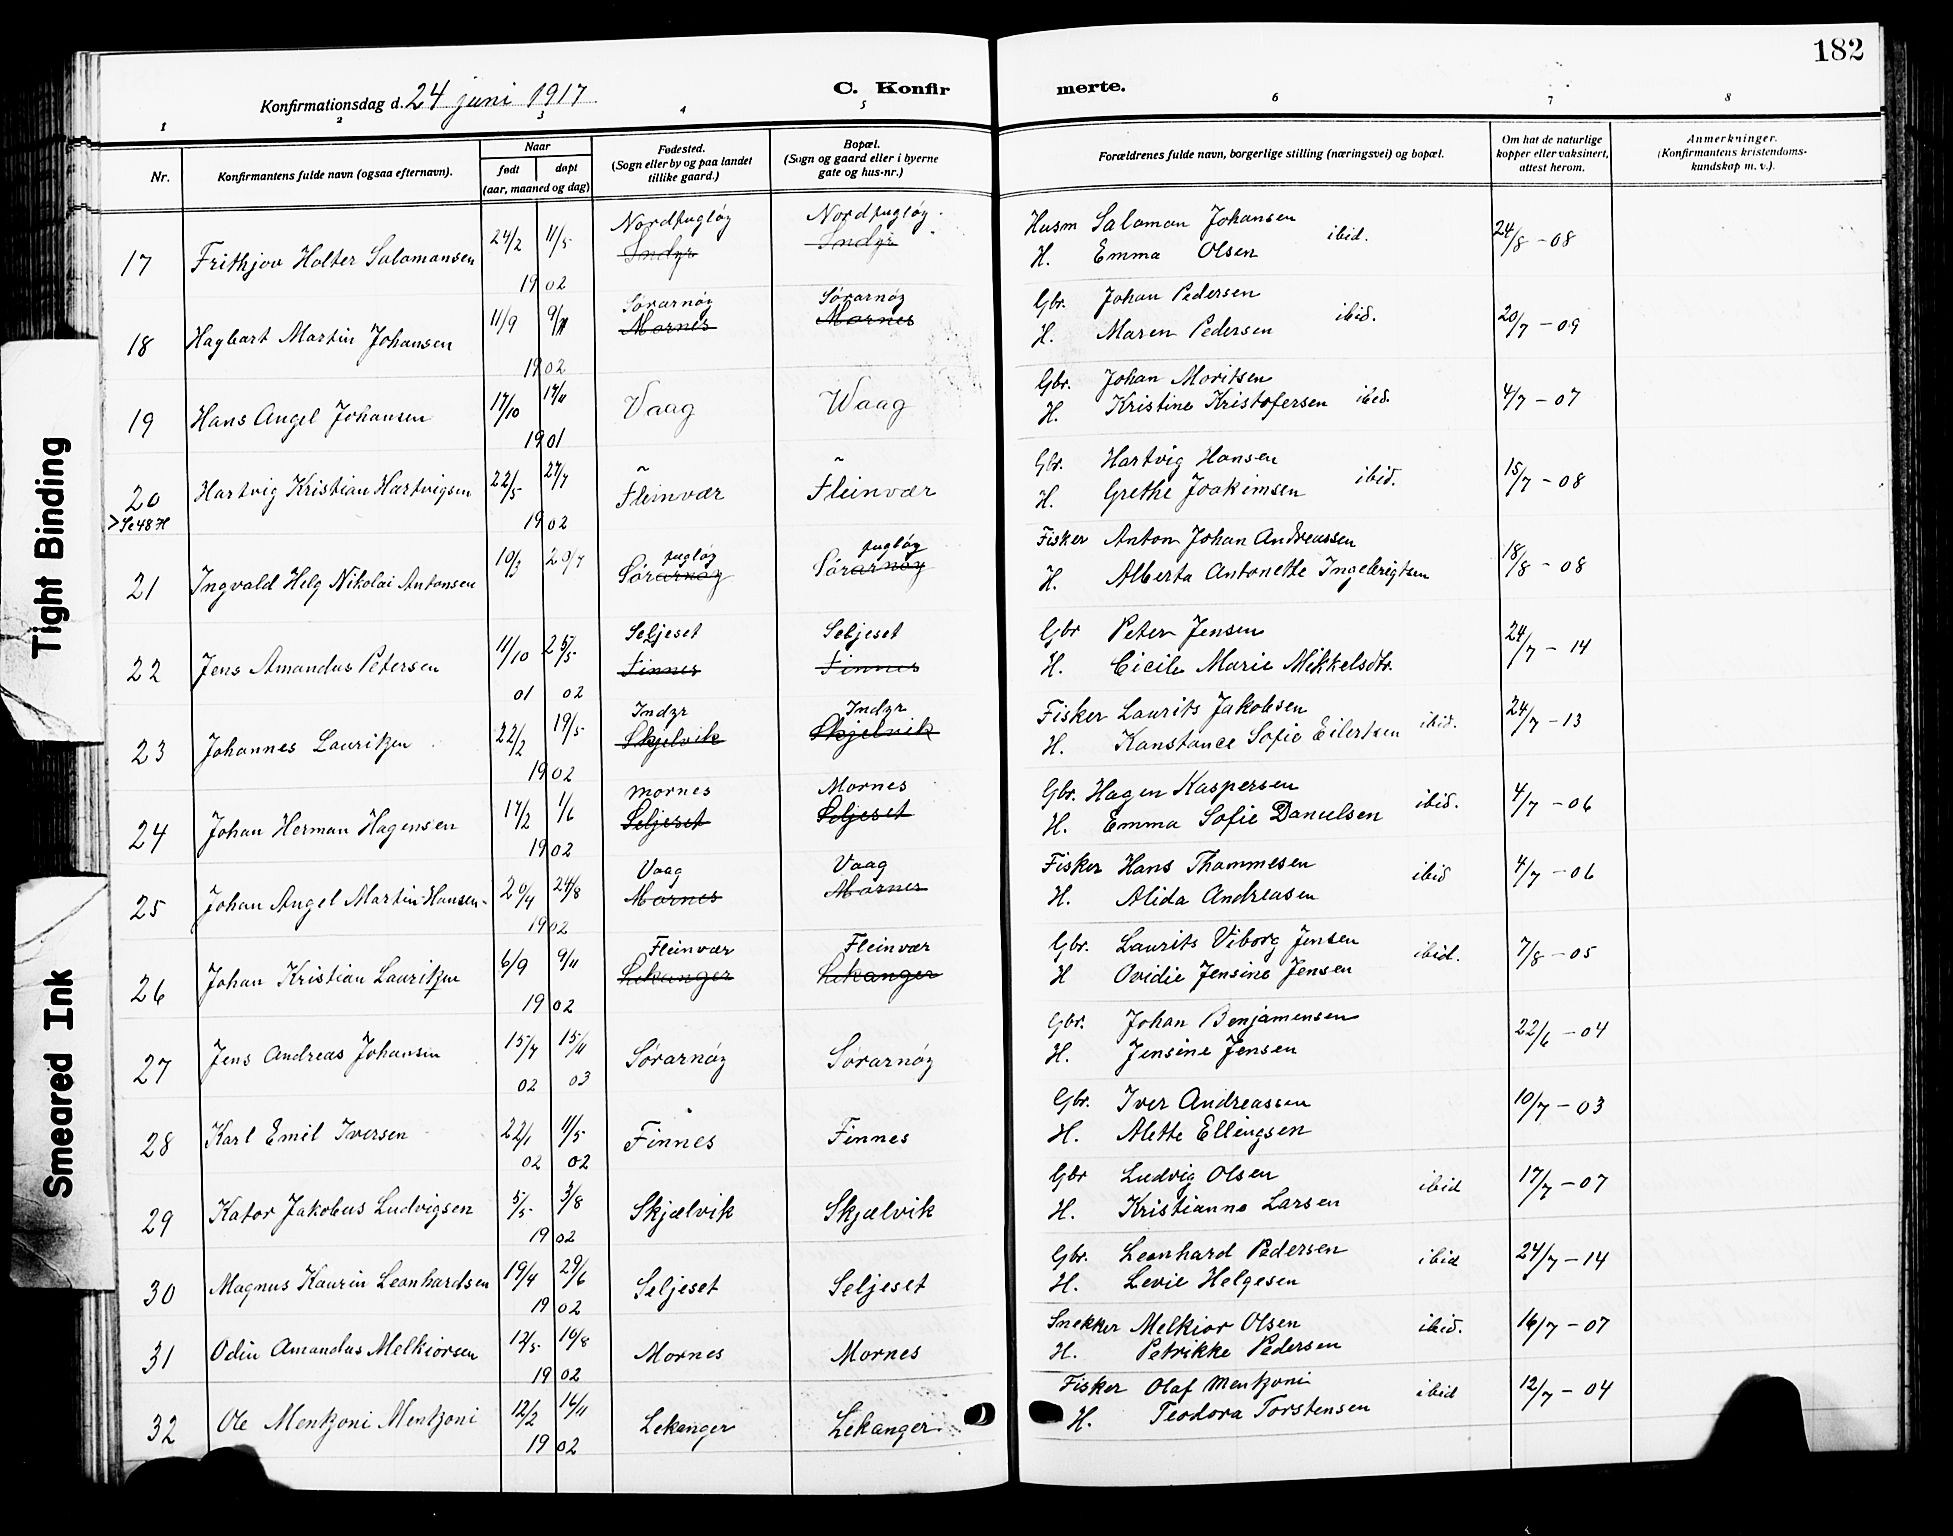 182
Konfirmationsdag d. 24 juni 1917
C. Konfir merte.
1 2 3 4 5 6 7 8
Nr.
Konfirmantens fulde navn (ogsaa efternavn).
Naar
født døpt
(aar, maaned og dag)
Fødested.
(Sogn eller by og paa landet
tillike gaard.)
Bopæl.
(Sogn og gaard eller i byerne
gate og hus-nr.)
Forældrenes fulde navn, borgerlige stilling (næringsvei) og bopæl.
Om hat de naturlige
kopper eller vaksinert,
attest herom.
Anmerkninger.
(Konfirmantens kristendoms-
kundskap m. v.).
Nordfugløy Nordfugløy. Husm Salaman Johansen ibid.
17 Frithjov Holter Salamansen 24/2 11/5 Indyr Indyr H. Emma Olsen 24/8 - 08
1902
Sørarnøy Sørarnøy Gbr. Johan Pedersen ibid.
18 Hagbart Martin Johansen 11/9 9/11 Mornes Mornes H. Maren Pedersen 20/7 - 09
1902
Gbr. Johan Moritsen
19 Hans Angel Johansen 17/10 17/11 Vaag Waag H. Kristine Kristofersen ibid. 4/7 - 07
1901
Gbr. Hartvig Hansen
20 Hartvig Kristian Hartvigsen 22/5 27/7 Fleinvær Fleinvær H. Grethe Joakimsen ibid. 15/7 - 08
>Se 48 H 1902
fugløy fugløy Fisker Anton Johan Andreassen
21 Ingvald Helg Nikolai Antonsen 10/3 20/7 Sørarnøy Sørarnøy H. Alberta Antonette Ingebrigtsen 18/8 - 08
Seljeset Seljeset Gbr Peter Jensen
22 Jens Amandus Petersen 11/10 25/5 Finnes Finnes H. Cicile Marie Mikkelsdtr. 24/7 - 14
01 02
Indyr Indyr Fisker Laurits Jakobsen
23 Johannes Lauritzen 22/2 19/5 Skjelvik Skjelvik H. Konstance Sofie Eilertsen ibid. 24/7 - 13
1902
Mornes Mornes Gbr. Hagen Kaspersen
24 Johan Herman Hagensen 17/2 1/6 Seljeset Seljeset H. Emma Sofie Danielsen ibid. 4/7 - 06
1902
Vaag Vaag Fisker Hans Thommesen ibid
25 Johan Angel Martin Hansen 20/4 24/8 Mornes Mornes H. Alida Andreasen 4/7 - 06
1902
Fleinvær Fleinvær Gbr. Laurits Viborg Jensen ibid.
26 Johan Kristian Lauritzen 6/9 9/11 Lekanger Lekanger H Ovidie Jensine Jensen 7/8 - 05
1902
Gbr. Johan Benjamensen
27 Jens Andreas Johansen 15/7 15/11 Sørarnøy Sørarnøy H. Jensine Jensen 22/6 - 04
02 03
Gbr. Iver Andreassen
28 Karl Emil Iversen 22/1 11/5 Finnes Finnes H. Alette Ellingsen 10/7 - 03
02 02
Gbr Ludvig Olsen ibid
29 Kator Jakobus Ludvigsen 5/5 3/8 Skjælvik Skjælvik H. Kristianne Larsen 17/7 - 07
1902
Gbr. Leonhard Pedersen ibid
30 Magnus Kaurin Leonhardsen 19/4 29/6 Seljeset Seljeset H. Levie Helgesen 24/7 - 14
1902
Snekker Melkior Olsen ibid.
31 Odin Amandus Melkiorsen 12/5 10/8 Mornes Mornes H. Petrikke Pedersen 16/7 - 07
1902
Fisker Olaf Mentzoni ibid
32 Ole Mentzoni Mentzoni 12/2 16/11 Lekanger Lekanger H. Teodora Torstensen 12/7 - 04
1902
Tight Binding
Smeared Ink